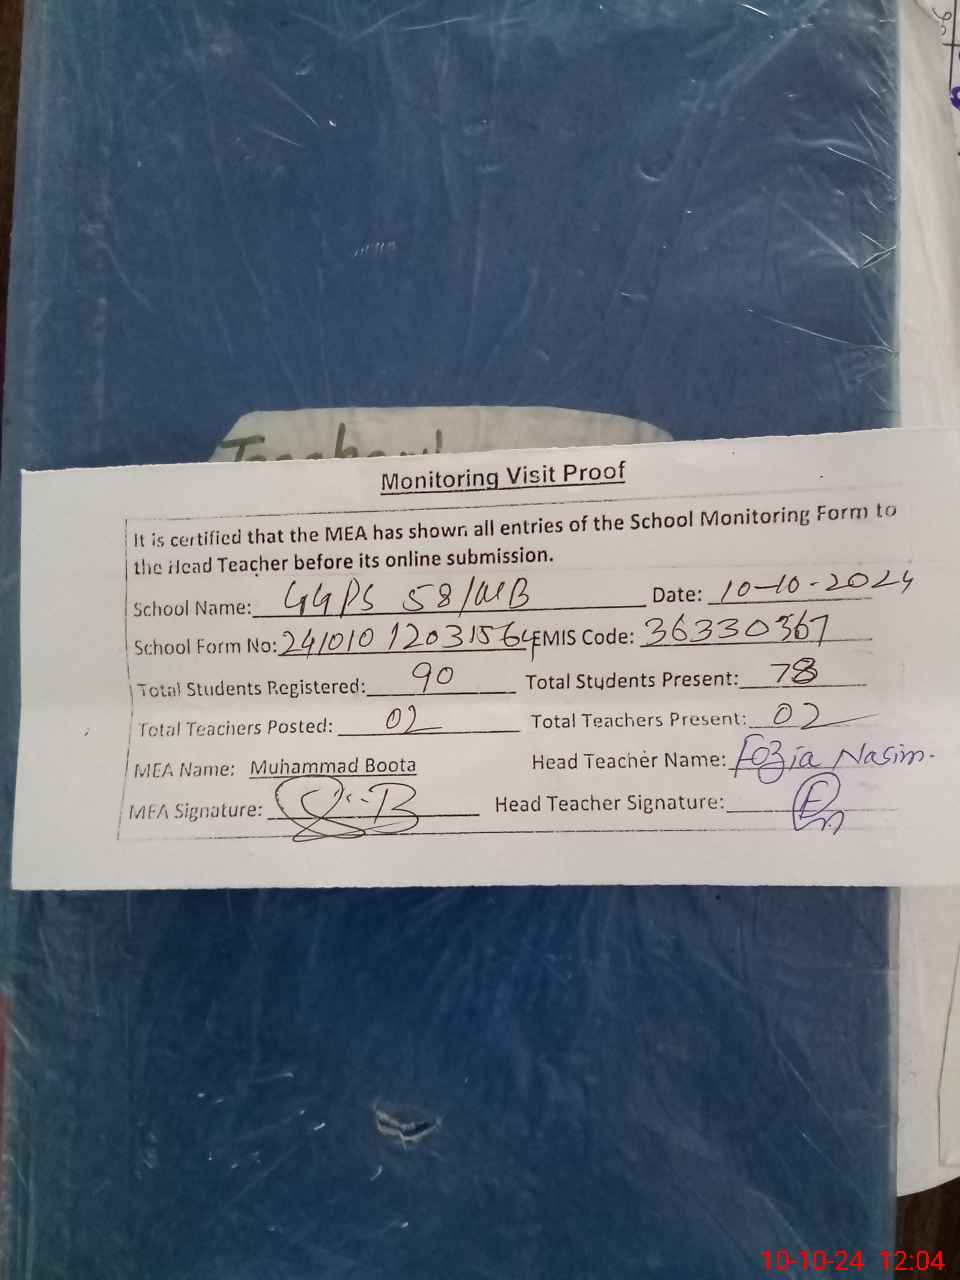 Monitoring Visit Proof
It is certified that the MEA has shown all entries of the School Monitoring Form to
the Head Teacher before its online submission.
School Name: GGPS 58/WB Date: 10-10-2024
School Form No: 24101012031564 EMIS Code: 36330367
Total Students Registered: 90 Total Students Present: 78
Total Teachers Posted: 02 Total Teachers Present: 02
MEA Name: Muhammad Boota Head Teacher Name: Fozia Nasim.
MEA Signature: Head Teacher Signature:
10-10-24 12:04